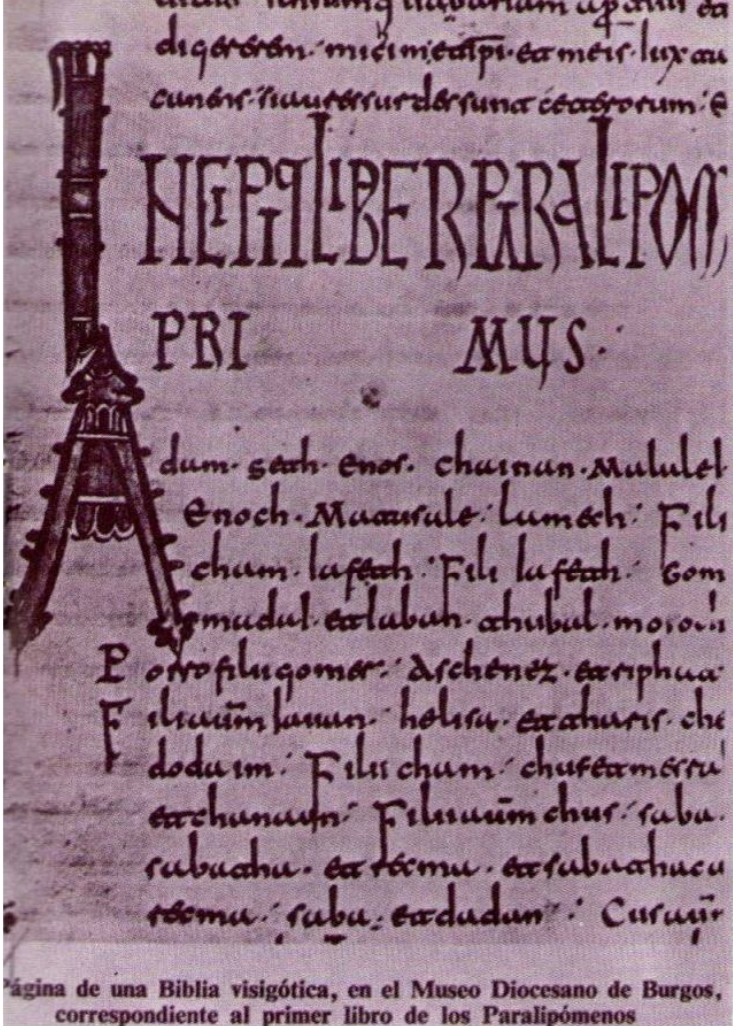 digererem. mici meisqe. et meis. lux au
INCIPIT LIBER PARALIPOM
PRI MUS.
Adam. Seth. Enos. Chainan. Malalel
Enoch. Matusale. lamech. Fili
cham. Iafeth. Fili Iafeth. Gom
madai. et Iaban. thubal. mosoch
Porro filii gomer. Aschenez. et riphat
Filii autm Iauan. helisa. et tharsis. che
dodaim. Filii cham. chus et mesra
et chanaan. Filii autm chus. saba.
sabatha. et recma. et sabathaca
recma. saba. et dadan. Cus aut
Página de una Biblia visigótica, en el Museo Diocesano de Burgos,
correspondiente al primer libro de los Paralipómenos